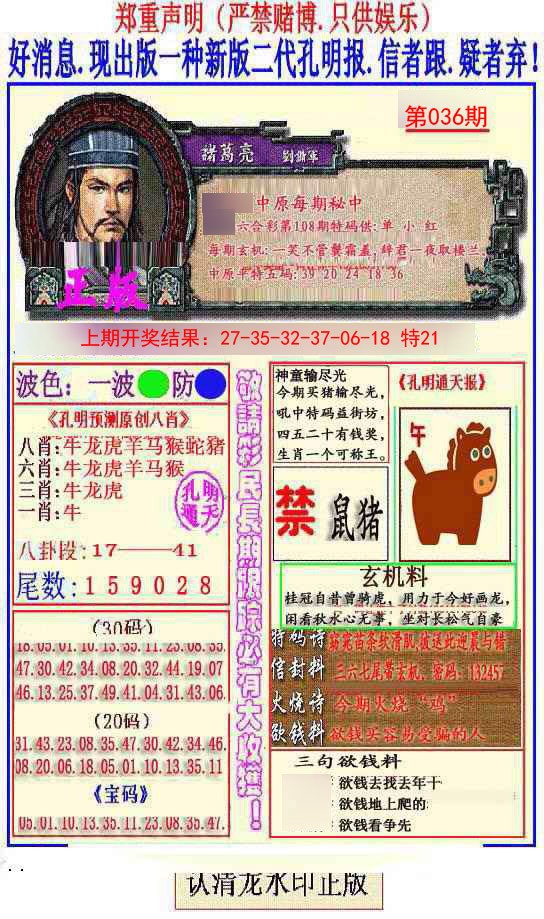 郑重声明（严禁赌博.只供娱乐）
好消息.现出版一种新版二代孔明报.信者跟.疑者弃！
第036期
諸葛亮
中原每期秘中
六合彩第108期特码供: 单 小 红
每期玄机: 一笑不管 霜盖, 辞君一夜取楼兰.
中原平特五码: 39 20 24 18 36
正版
上期开奖结果：27-35-32-37-06-18 特21
波色：一波 防
《孔明预测原创八肖》
八肖:牛龙虎羊马猴蛇猪
六肖:牛龙虎羊马猴
三肖:牛龙虎
一肖:牛
孔明
通天
八卦段:17——41
尾数:159028
(30码)
18.05.01.10.13.35.11.23.08.35.
47.30.42.34.08.20.32.44.19.07
46.13.25.37.49.41.04.31.43.06.
(20码)
31.43.23.08.35.47.30.42.34.46.
08.20.06.18.05.01.10.13.35.11
《宝码》
05.01.10.13.35.11.23.08.35.47.
敬請彩民長期跟踪必有大收獲！
神童输尽光
今期买猪输尽光，
吼中特码益街坊，
四五二十有钱奖，
生肖一个可称王。
《孔明通天报》
午
禁 鼠猪
玄机料
桂冠自昔曾骑虎，用力于今好画龙，
闲看秋水心无事，坐对长松气自豪
特码诗
信封料 三六七尾带玄机，密码：132457
火烧诗 今期火烧“鸡”
欲钱料 欲钱买容易受骗的人
三句欲钱料
欲钱去找去年十
欲钱地上爬的
欲钱看争先
认清龙水印正版